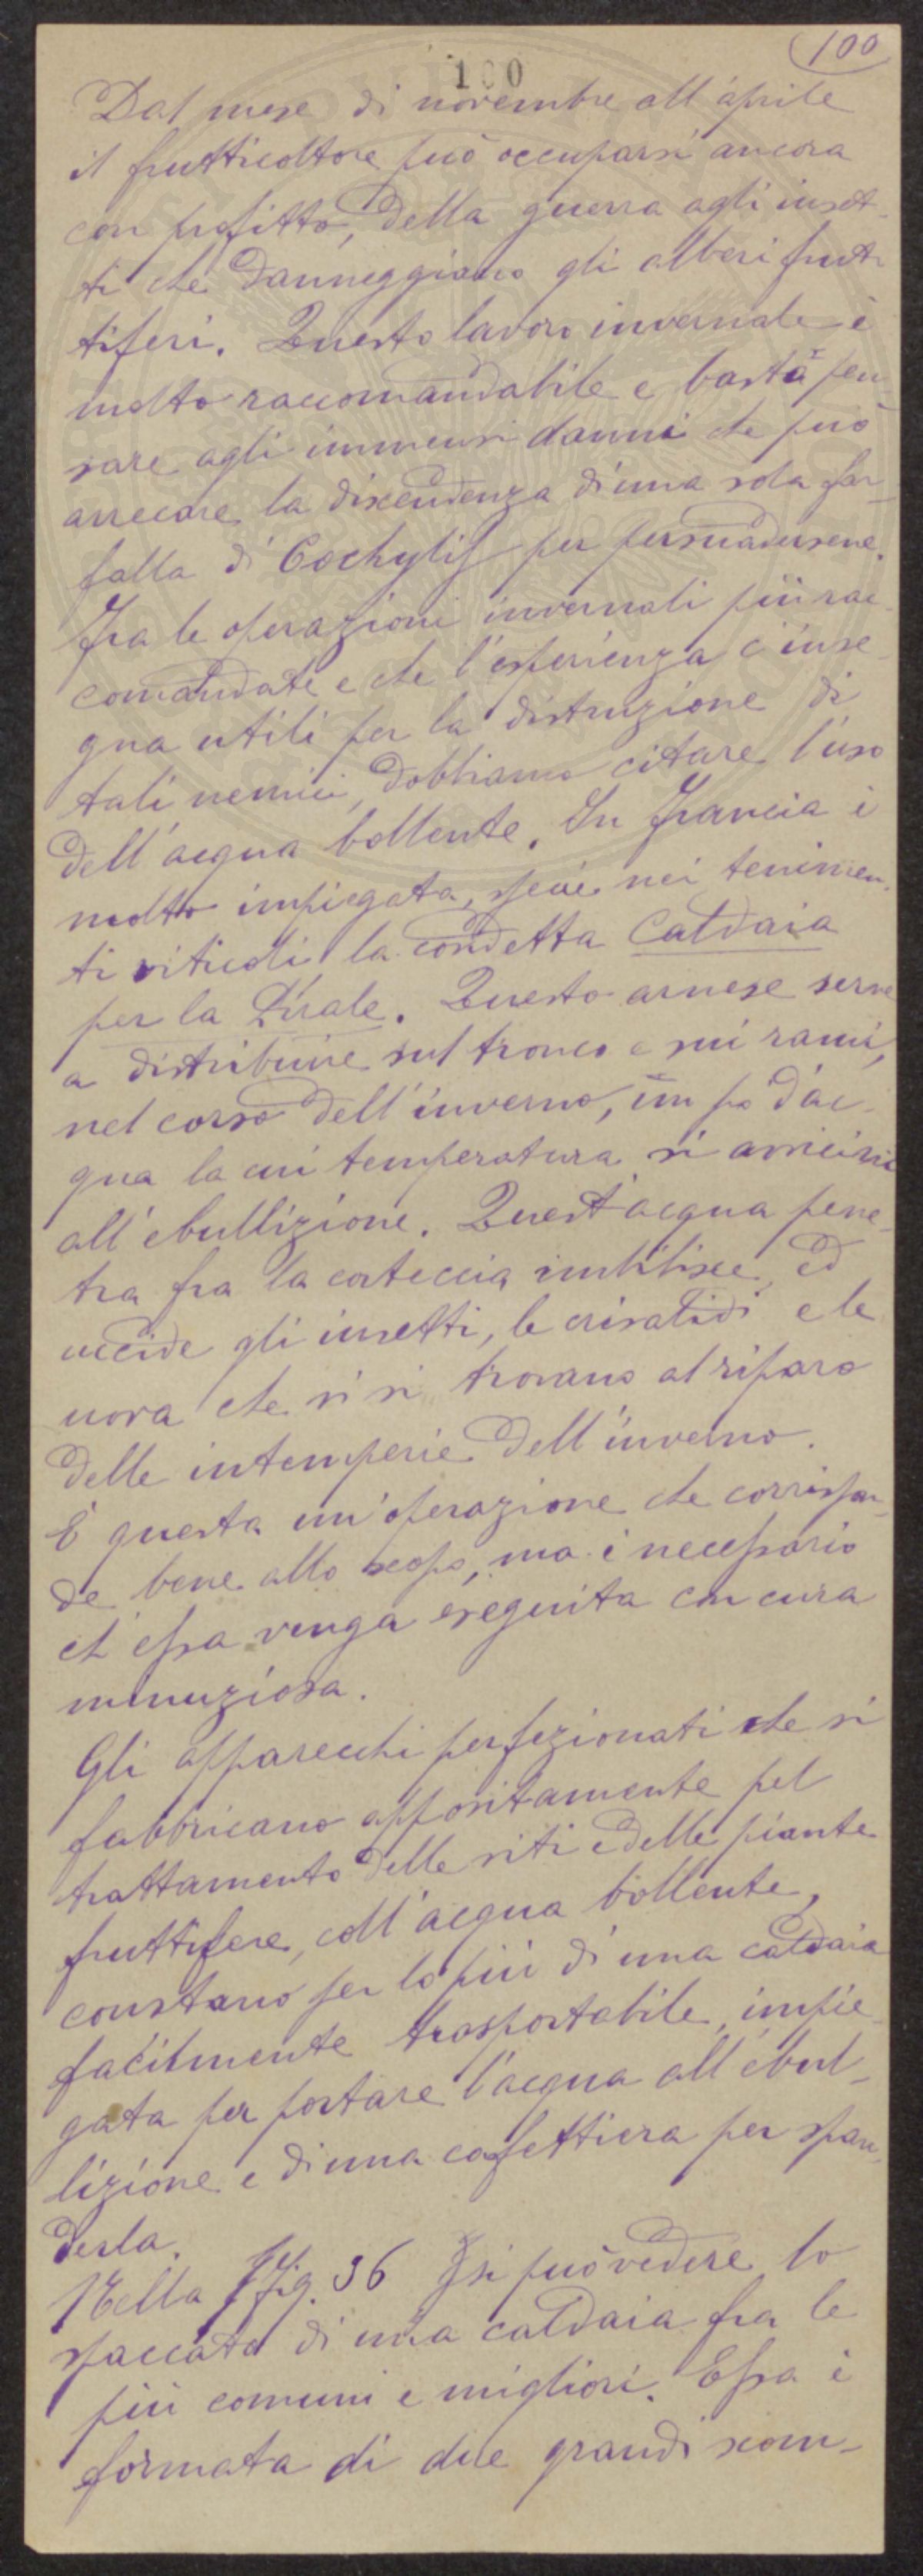 100
100
Dal mese di novembre all'aprile
il frutticoltore può occuparsi ancora
con profitto, della guerra agli inset-
ti che danneggiano gli alberi frut-
tiferi. Questo lavoro invernale è
molto raccomandabile e basta pen-
sare agli immensi danni che può
arrecare la discendenza d'una sola far-
falla di Cochylis per persuadersene.
Fra le operazioni invernali più rac-
comandate e che l'esperienza c'inse-
gna utili per la distruzione di
tali nemici, dobbiamo citare l'uso
dell'acqua bollente. In Francia è
molto impiegata, specie nei tenimen-
ti viticoli, la cosidetta Caldaia
per la Pirale. Questo arnese serve
a distribuire sul tronco e sui rami,
nel corso dell'inverno, un po' d'ac-
qua la cui temperatura si avvicini
all'ebullizione. Quest'acqua pene-
tra fra la corteccia ed
uccide gli insetti, le crisalidi e le
uova che vi si trovano al riparo
delle intemperie dell'inverno.
È questa un'operazione che corrispon-
de bene allo scopo, ma è necessario
ch'essa venga eseguita con cura
minuziosa.
Gli apparecchi perfezionati che si
fabbricano appositamente pel
trattamento delle viti e delle piante
fruttifere, coll'acqua bollente,
constano per lo più di una caldaia
facilmente trasportabile, impie-
gata per portare l'acqua all'ebul-
lizione e di una caffettiera per span-
derla.
Nella Fig. 36 si può vedere lo
spaccato di una caldaia fra le
più comuni e migliori. Essa è
formata di due grandi scom-